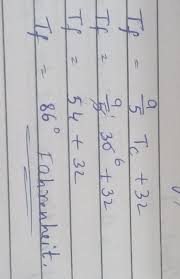 Tf = 9/5 Tc + 32
Tf = 9/5 · 30 6 + 32
Tf = 54 + 32
Tf = 86° Fahrenheit.